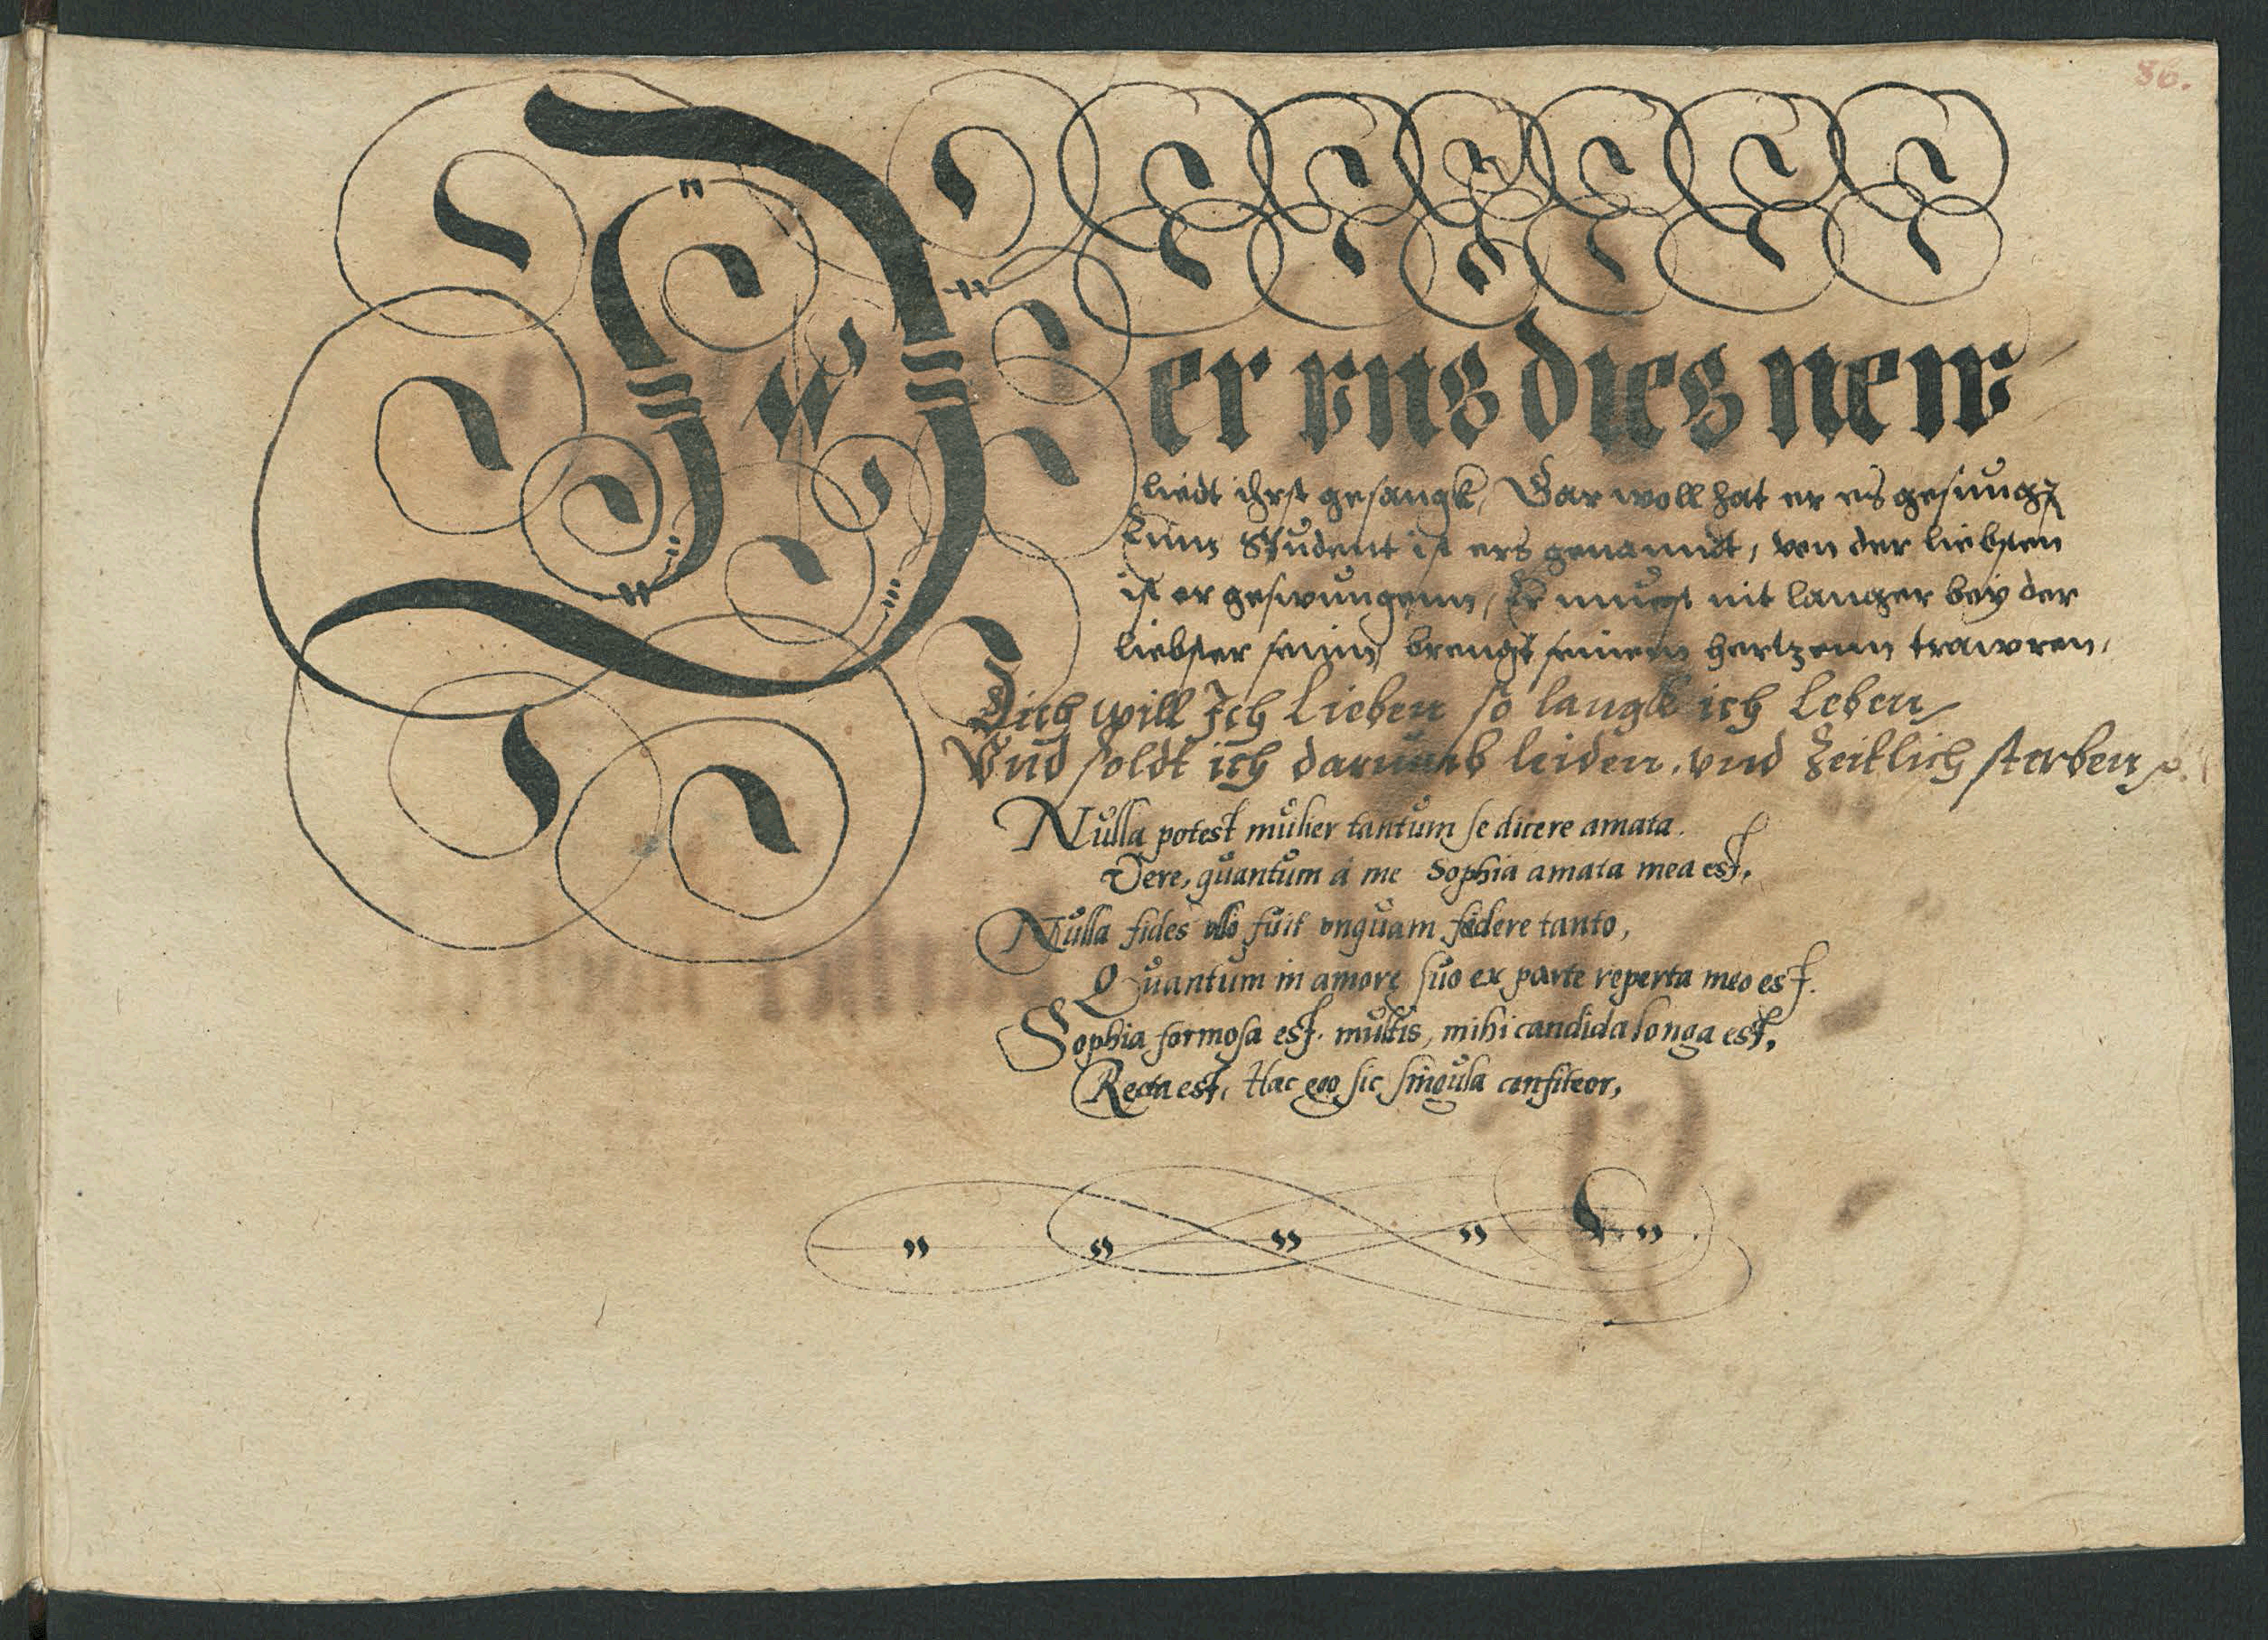 86.
Der vns dies new
liedt ihrst gesangk, Gar woll hat er es gesung
Einn Student ist ers genanndt, von der liebsten
ist er geswungenn, Er muest nit langer bey der
liebster seinn, brengt seinem hertzenn trawren,
Dich will Jch Lieben so langk ich Leben
Vnd soldt ich darumb leiden, vnd zeitlich sterben
Nulla potest mulier tantum se dicere amata.
Vere, quantum á me Sophia amata mea est,
Nulla fides vllo fuit vnquam fœdere tanto,
Quantum in amore suo ex parte reperta meo est.
Sophia formosa est multis, mihi candida longa est,
Recta est, Hæc ego sic singula confiteor,